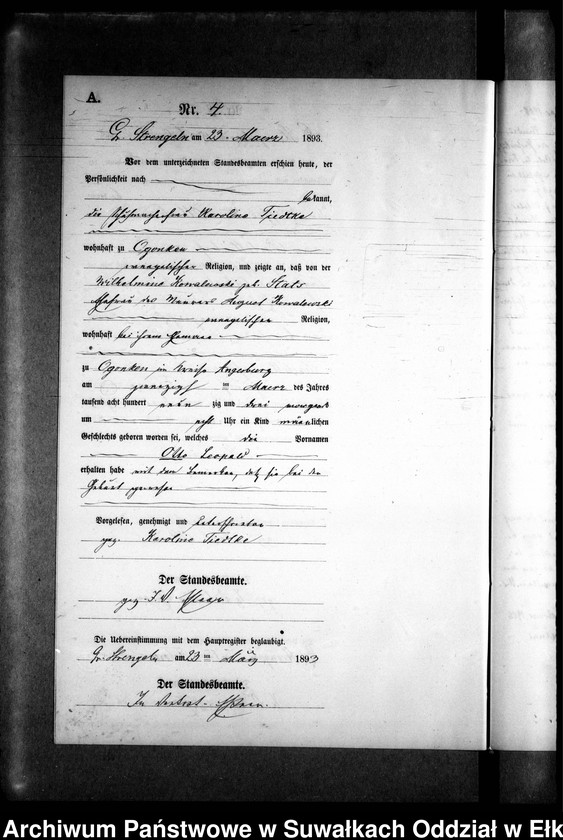 A.
Nr. 4.
Gr Strengeln am 23 Maerz 1893.
Vor dem unterzeichneten Standesbeamten erschien heute, der
Persönlichkeit nach
bekannt,
die Karoline Tiedtke
wohnhaft zu Ogonken
evangelischer Religion, und zeigte an, daß von der
Wilhelmine Kowalewski geb.
Ehefrau des Maurers August Kowalewski
evangelischer Religion,
wohnhaft bei ihrem Ehemanne
zu Ogonken im Kreise Angerburg
am zwanzigsten Maerz des Jahres
tausend acht hundert neun zig und drei morgens
um acht Uhr ein Kind männlichen
Geschlechts geboren worden sei, welches die Vornamen
Otto Leopold
erhalten habe mit dem Bemerken, daß sie bei der
Geburt gewesen
Vorgelesen, genehmigt und unterschrieben
gez. Karoline Tiedtke
Der Standesbeamte.
gez. I. V.
Die Uebereinstimmung mit dem Hauptregister beglaubigt.
Gr. Strengeln am 23 ten März 1893
Der Standesbeamte.
In Vertret.
Archiwum Państwowe w Suwałkach Oddział w Ełk